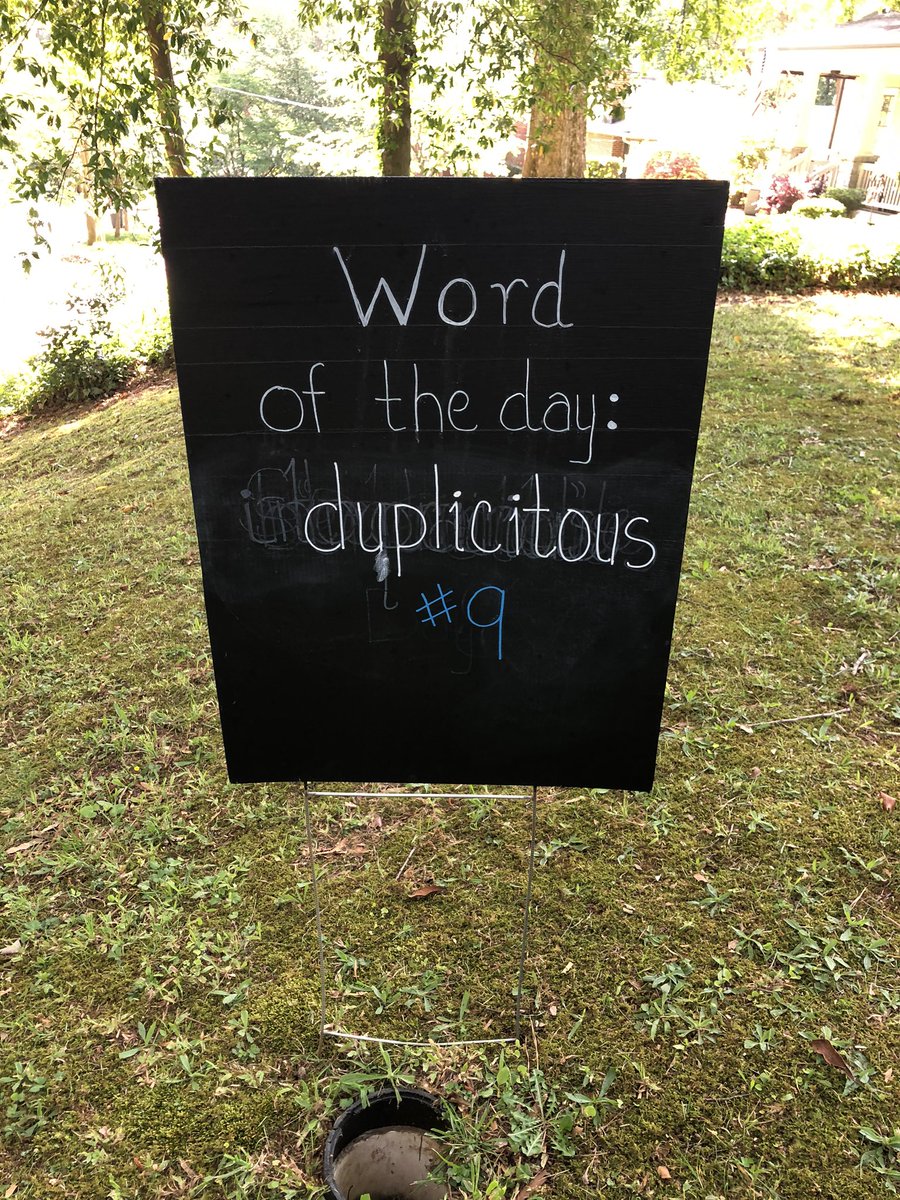 Word
of the day:
duplicitous
#9